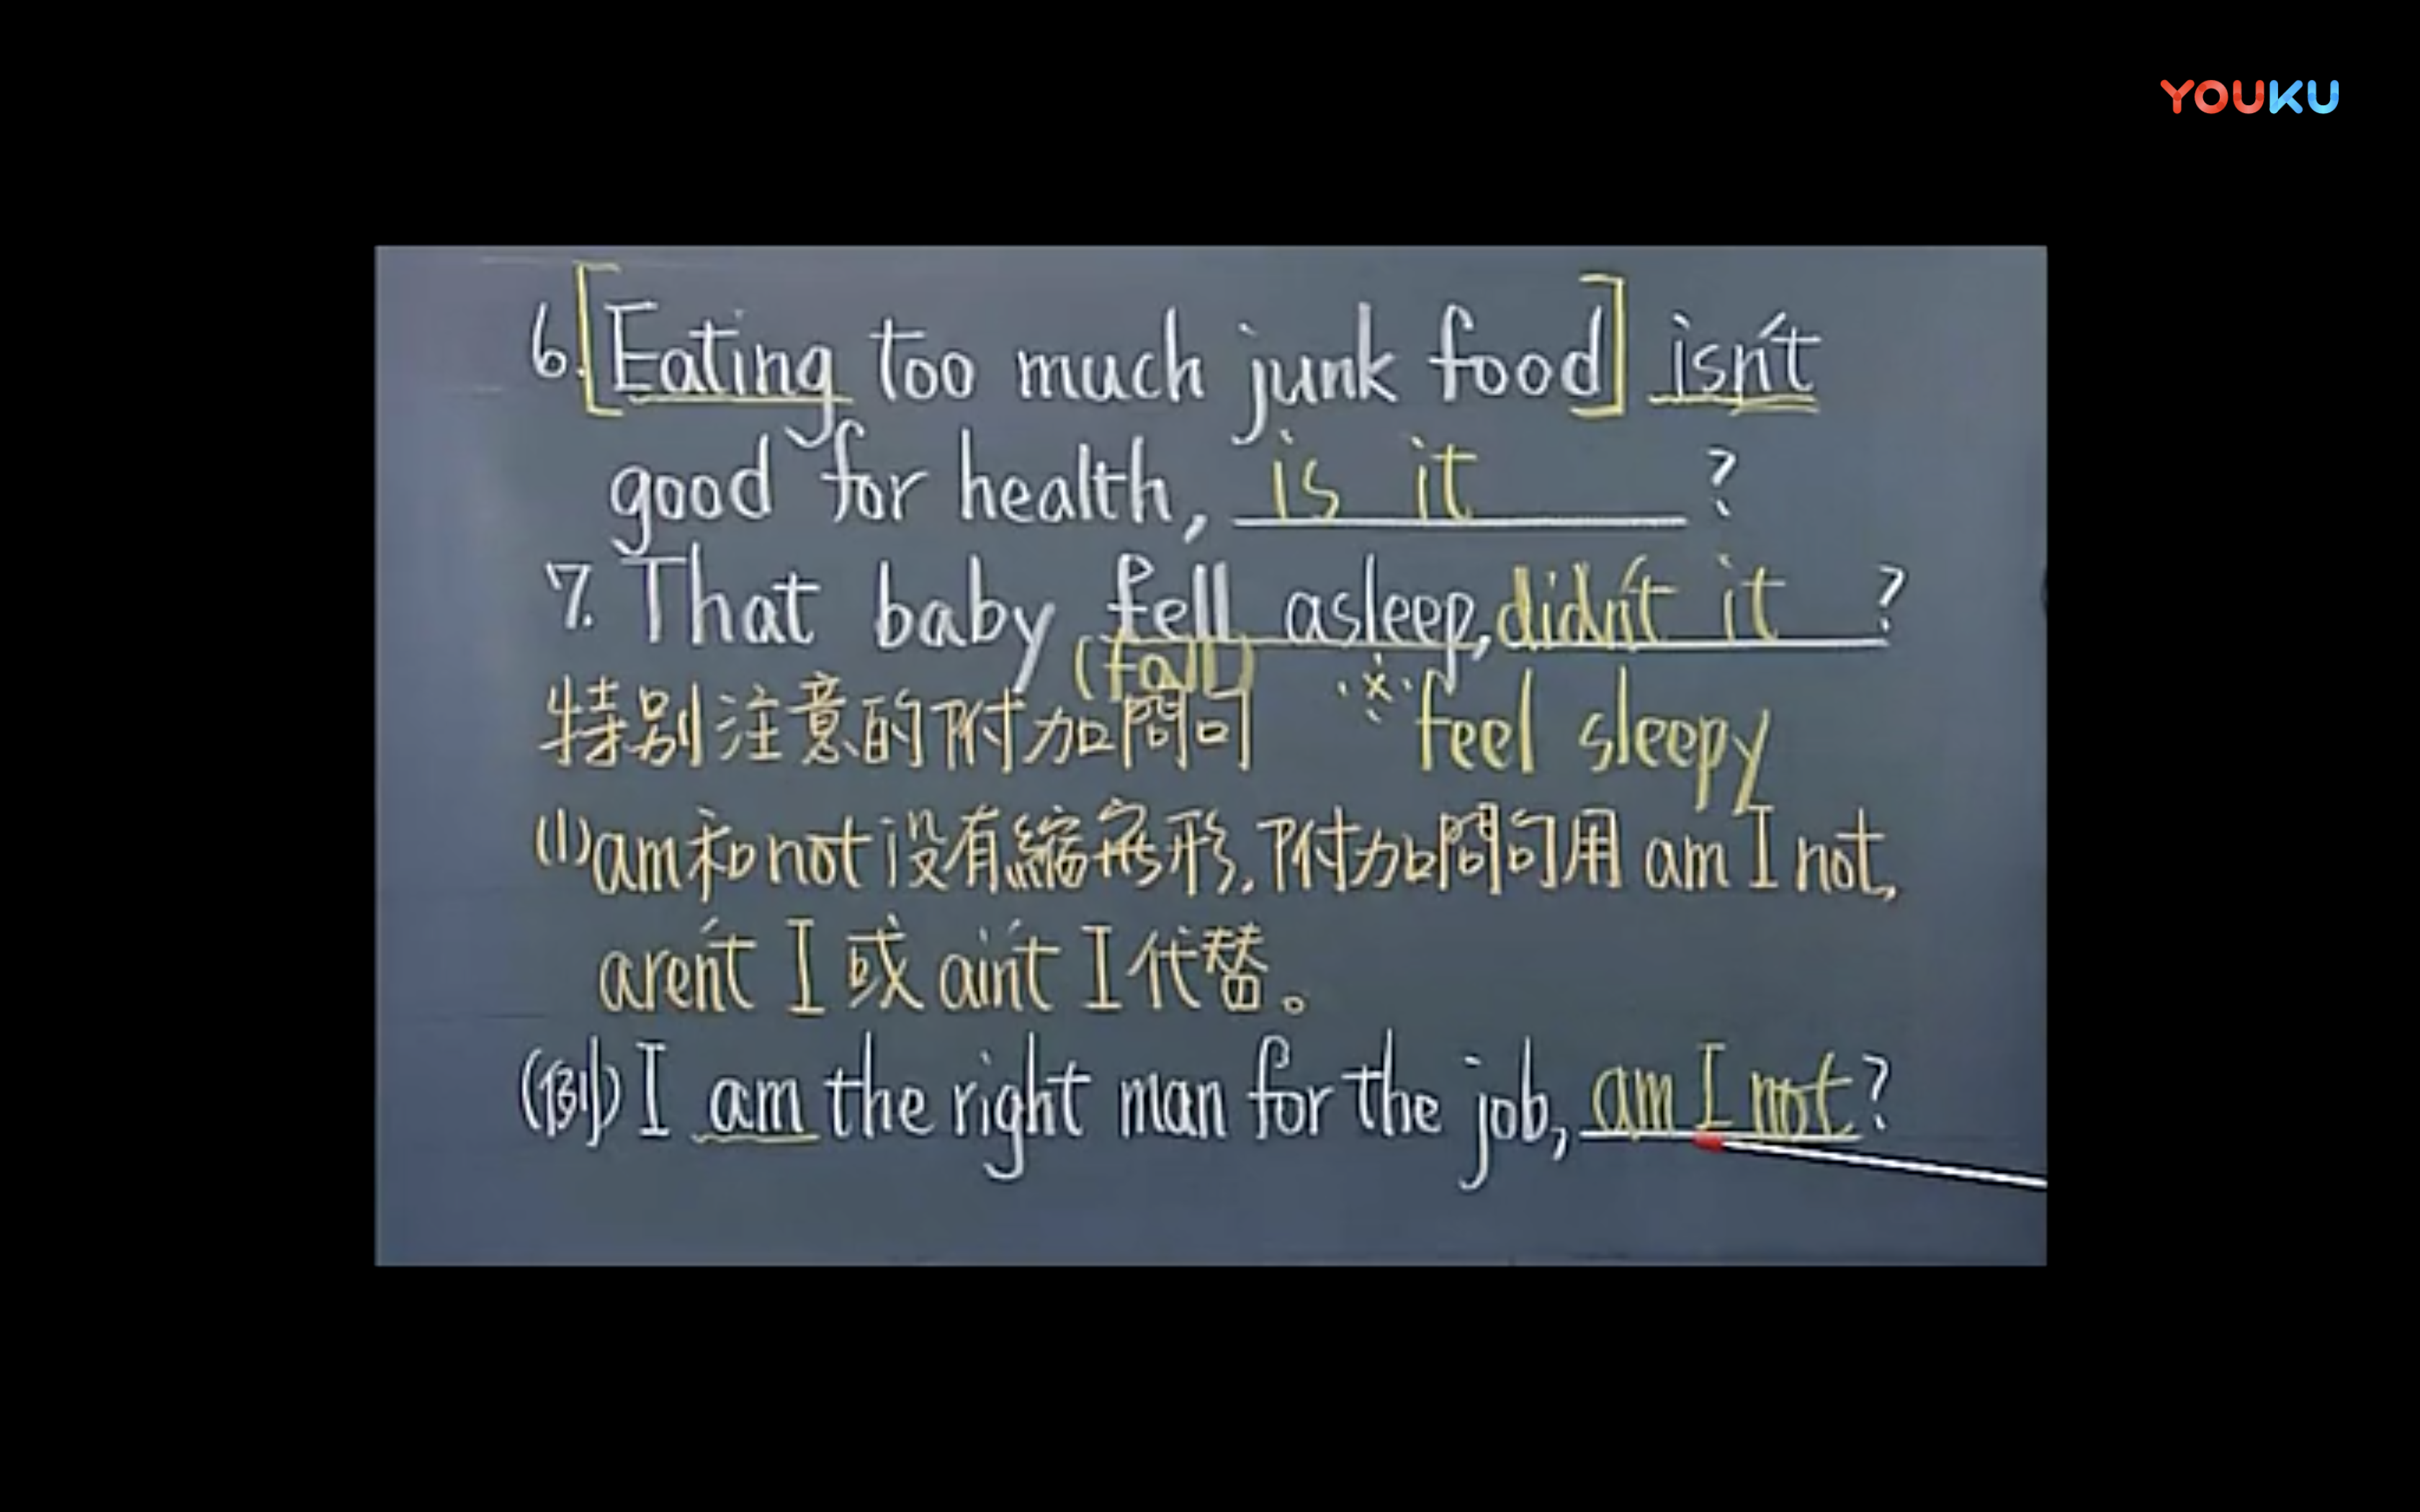 YOUKU
6. [Eating too much junk food] isn't
good for health, is it ?
7. That baby fell asleep, didn't it ?
(fall)
特別注意的附加問句 ※feel sleepy
(1) am和not没有縮寫形,附加問句用 am I not,
aren't I 或 ain't I 代替。
(例) I am the right man for the job, am I not?